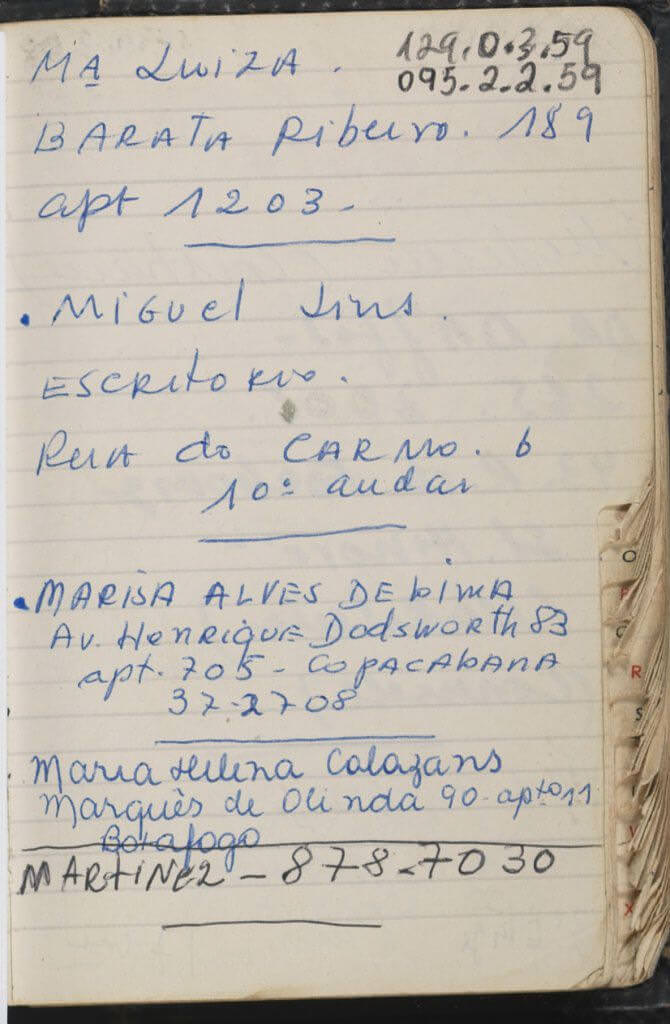 Mª Luiza.
129.0.3.59
095-2-2.59
BARATA Ribeiro. 189
apt 1203-
. MiGuel Lins.
ESCRitoRio.
RuA do CARMO. 6
10º andar
. MARISA ALVES DE LiMA
Av. HenRiquE DodsWoRth 83
apt. 705 - CopACAbANA
37-2708
Maria Helena Colazans
Marquês de Olinda 90-aptº 11
Botafogo
MARtiNEZ - 878-7030
O
P
Q
R
S
V
X